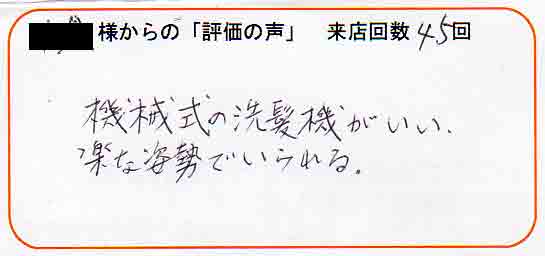 様からの「評価の声」　来店回数 45回
機械式の洗髪機がいい、
楽な姿勢でいられる。